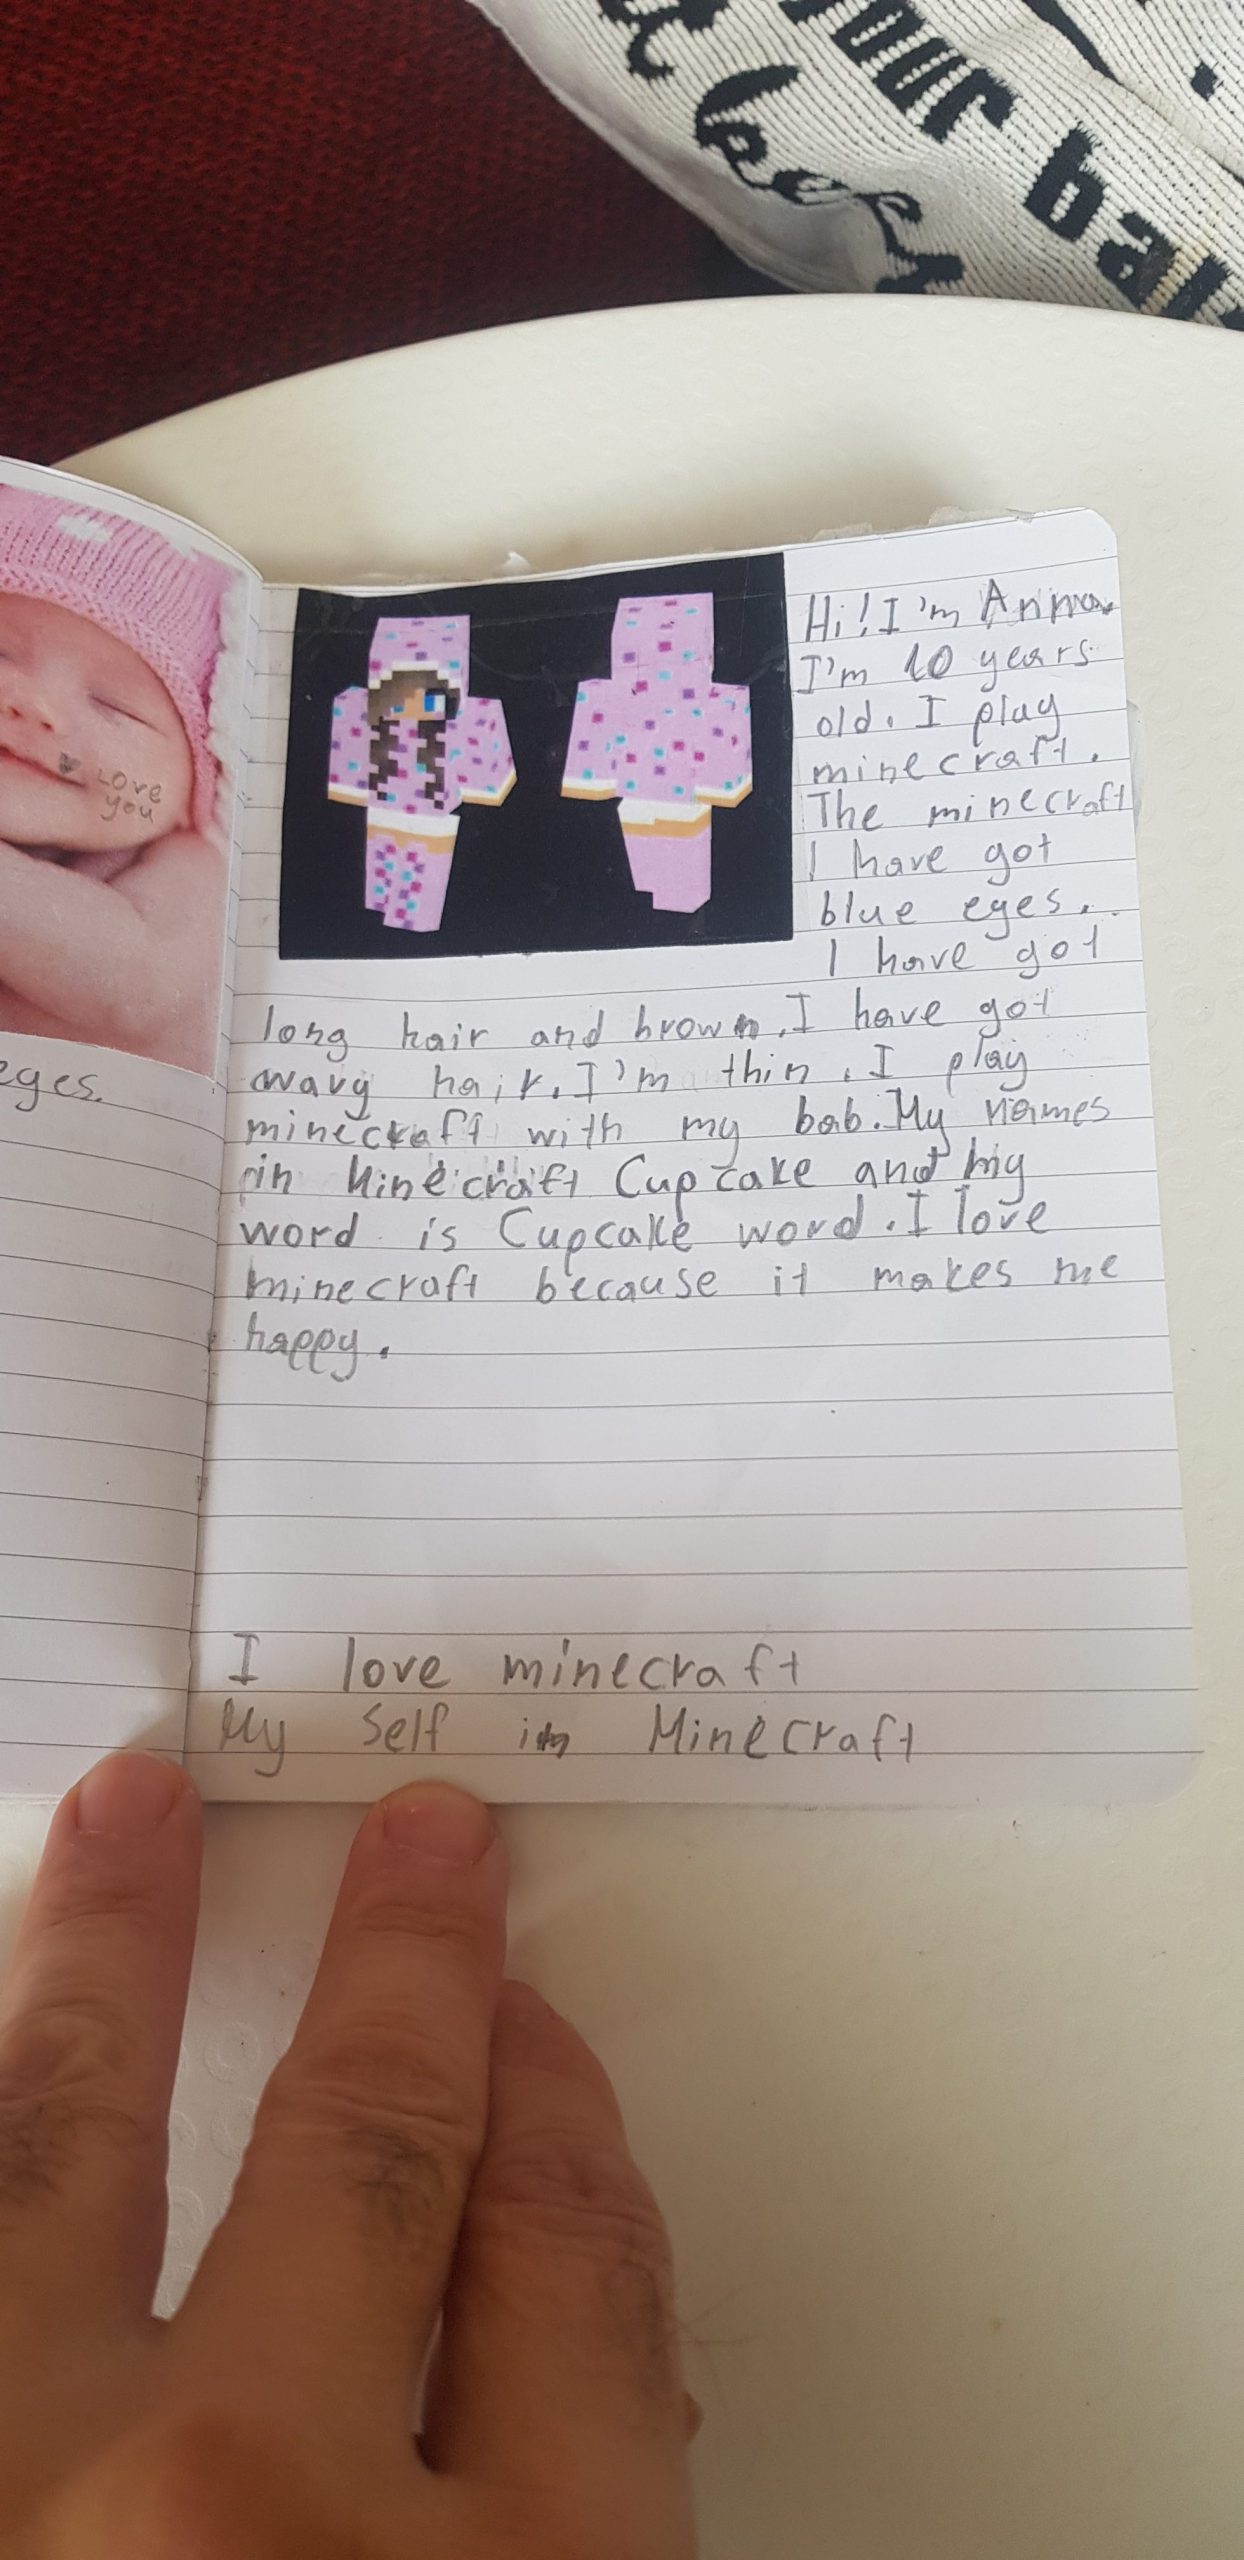 your bak
LOVE
you
eges.
Hi! I'm Anna.
I'm 10 years
old. I play
minecraft.
The minecraft
I have got
blue eyes.
I have got
long hair and brown. I have got
wavy hair. I'm thin. I play
minecraft with my bab. My names
in Minecraft Cupcake and my
word is Cupcake word. I love
minecraft because it makes me
happy.
I love minecraft
My Self in Minecraft